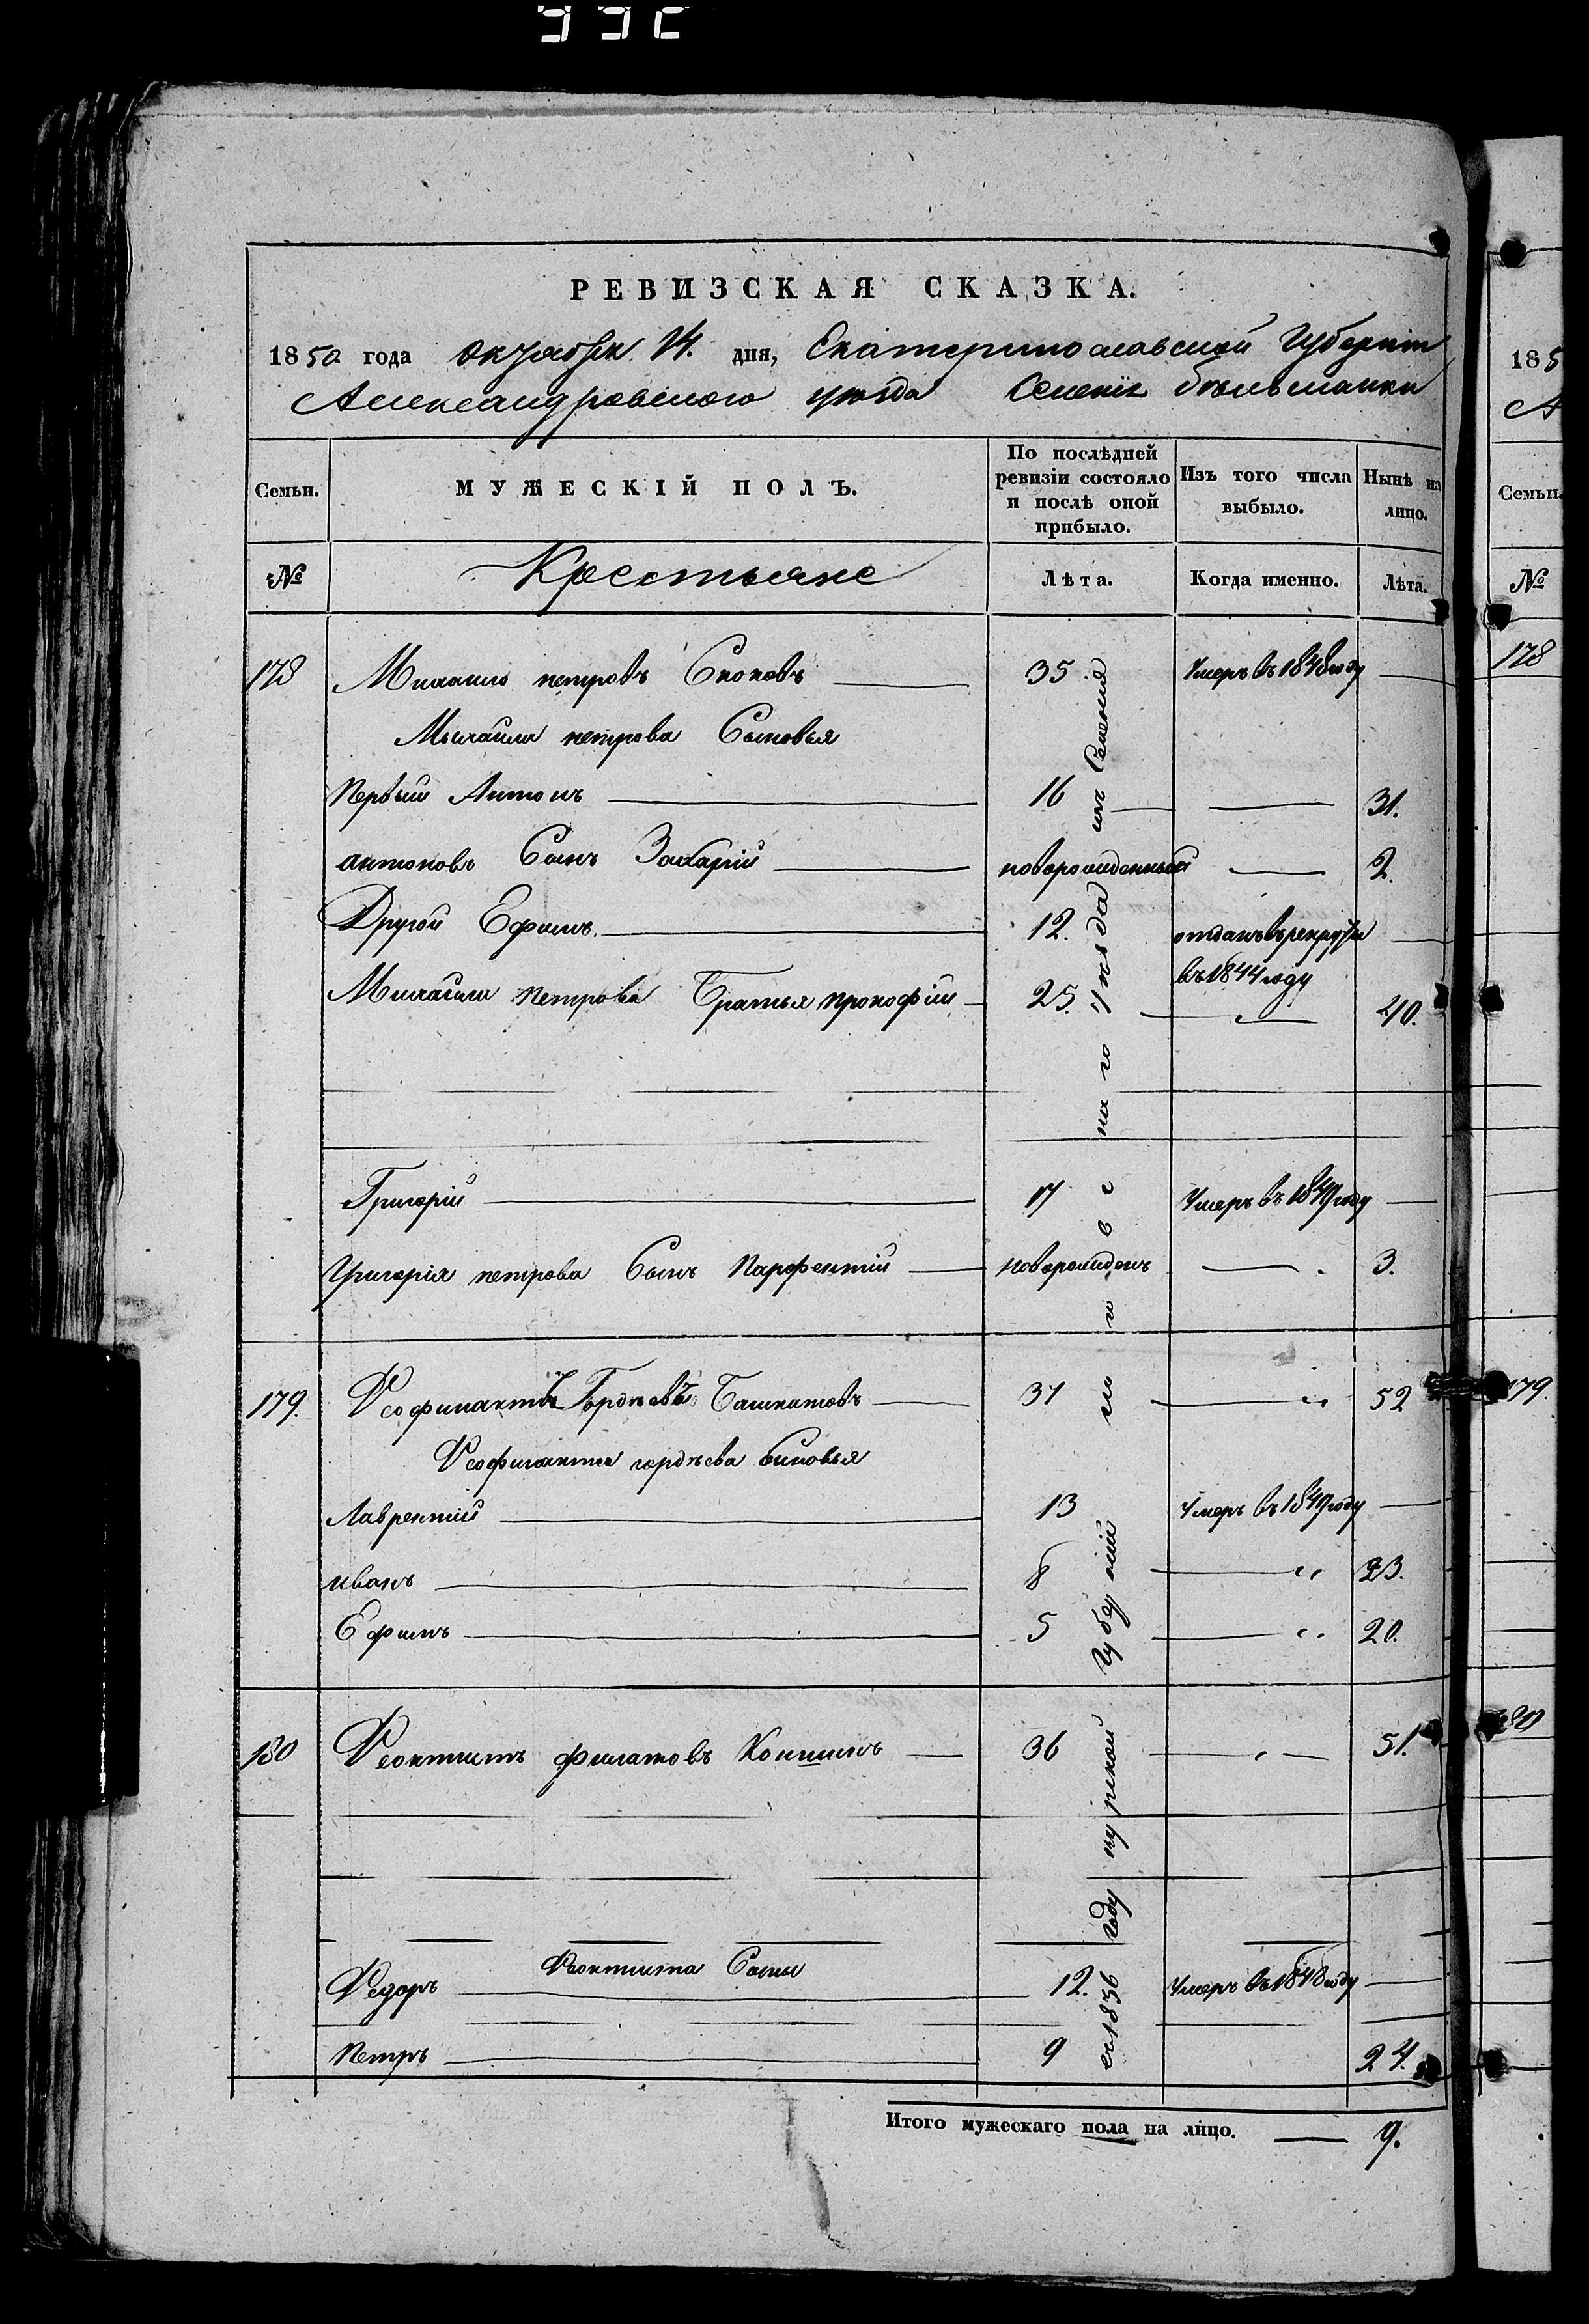 РЕВИЗСКАЯ СКАЗКА.
1850 года октября 14. дня, Екатеринославской Губернии
Александровского уезда Селенія Бѣльманки
Семьи.
МУЖЕСКІЙ ПОЛЪ.
По послѣдней ревизіи состояло и послѣ оной прибыло.
Изъ того числа выбыло.
Нынѣ на лицо.
№
Крестьяне
Лѣта.
Когда именно.
Лѣта.
178 Михаило петровъ 35 Умеръ въ 1848 году
Михаила петрова Сыновья
Первый Антонъ 16 31.
антоновъ Сынъ Захарій новорожденный 2.
Другой Ефимъ. 12. отданъ въ рекруты
въ 1844 году
Михаила петрова Братья прокофій 25. 40.
Григорій 17 Умеръ въ 1849 году
Григорія петрова Сынъ Парфентій новорожденъ 3.
179. Феофилактъ Гордѣевъ Башкатовъ 37 52
Феофилакта гордѣева Сыновья
Лаврентій 13 Умеръ въ 1849 году
иванъ 8 23.
Ефимъ 5 20.
180 Феоктистъ филатовъ 36 51.
Феоктиста Сыны
Федоръ 12. Умеръ въ 1848 году
Петръ 9 24.
1836 году курской Губерніи уѣзда Селенія
Итого мужескаго пола на лицо. 9.
185
А
Семьи.
№
178
179.
180